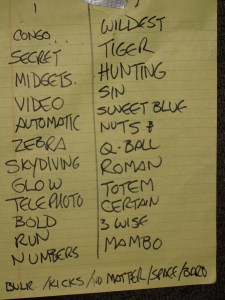 1
CONGO...
SECRET
MIDGETS.
VIDEO
AUTOMATIC
ZEBRA
SKYDIVING
GLOW
TELEPHOTO
BOLD
RUN
NUMBERS
WILDEST
TIGER
HUNTING
SIN
SWEET BLUE
NUTS &
Q-BALL
ROMAN
TOTEM
CERTAN
3 WISE
MAMBO
/KICKS/NO MATTER/SPACE/BARD